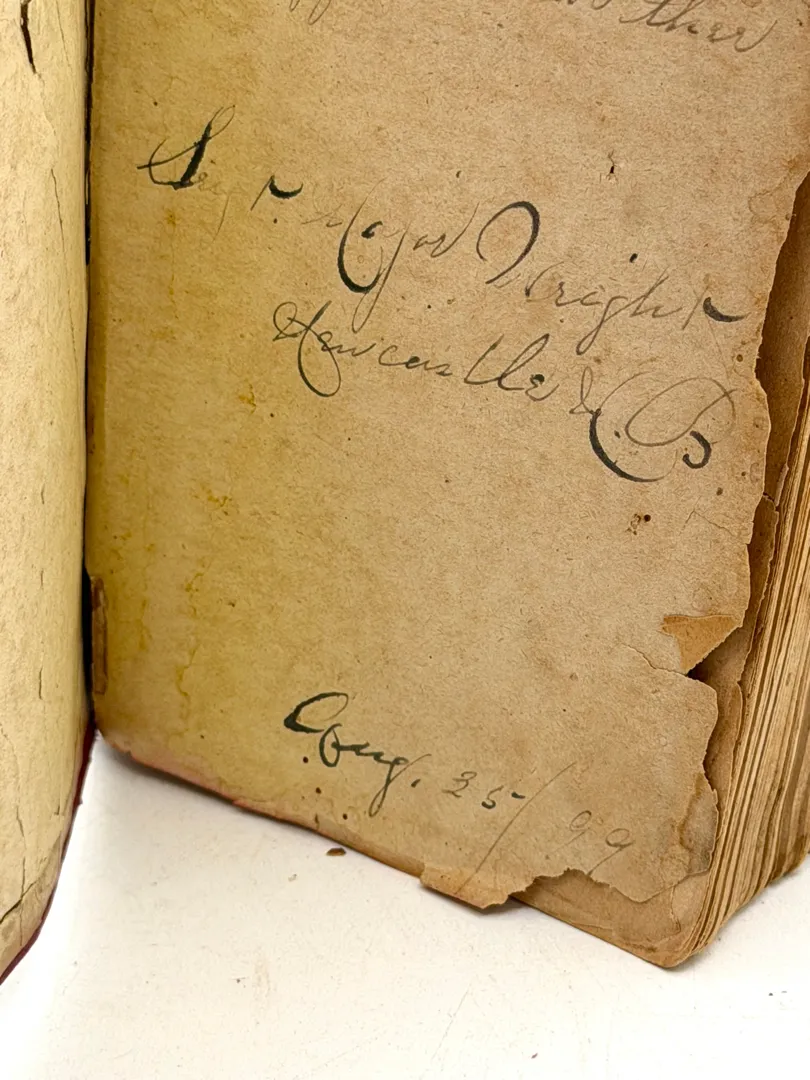 ther
Sergt. Major Wright
Newcastle N.B
Aug. 25/99